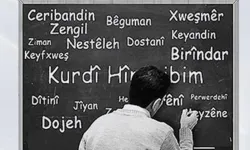 Ceribandin Bêguman Xweşmêr
Zengil Keyandin
Ziman Nestêleh Dostanî
Keyfxweş Birîndar
Kurdî Hîn bim
Dîtinî Jîyan Perwerdehî
Dojeh